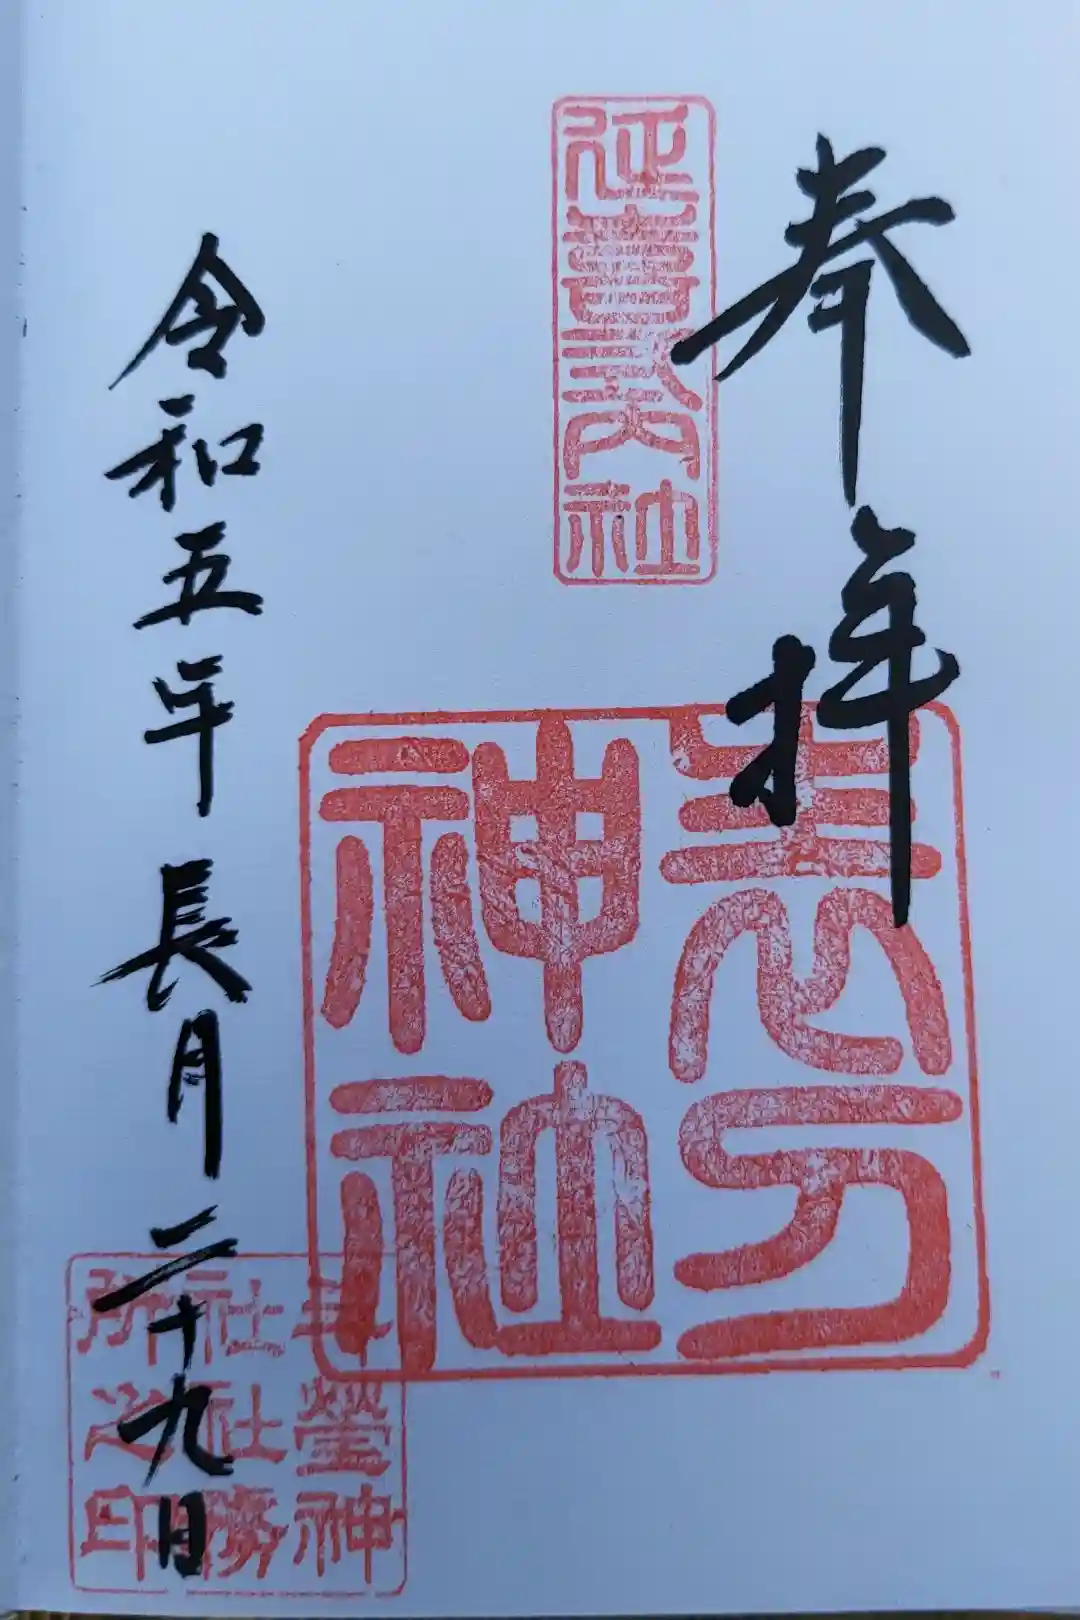 奉拝
延喜式内社
神社
令和五年長月二十九日
神社社務所之印